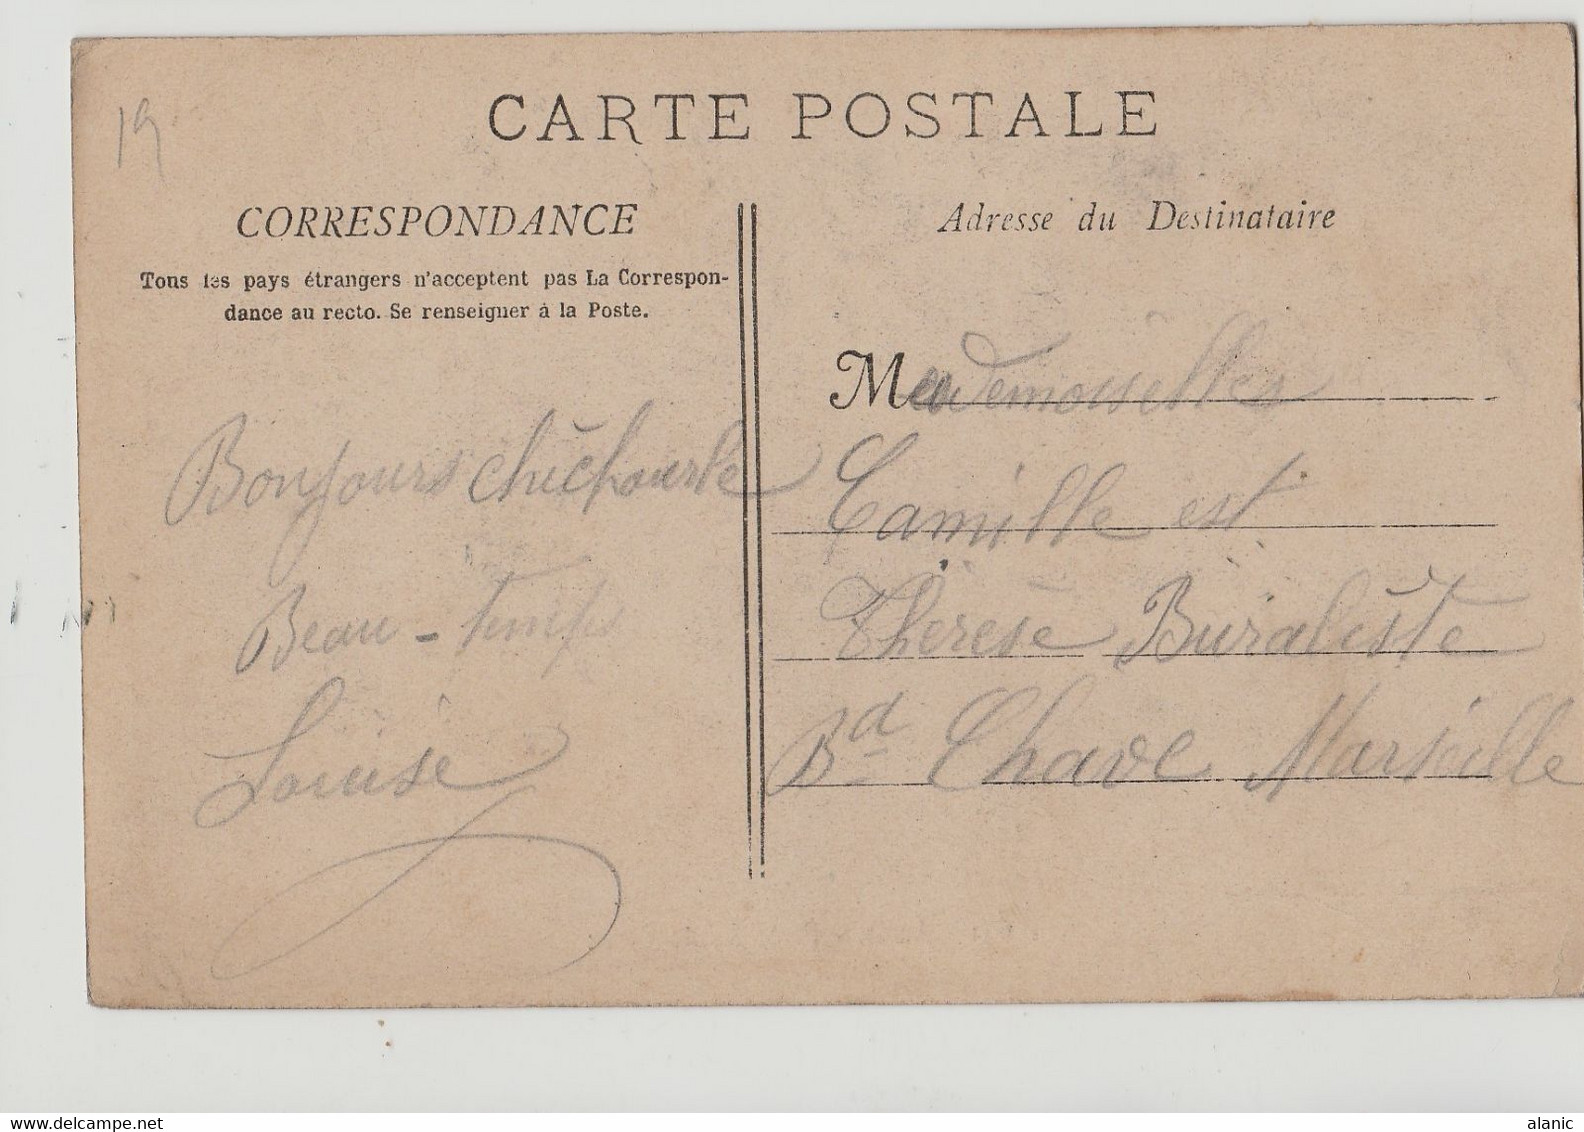 19
CARTE POSTALE
CORRESPONDANCE
Tous les pays étrangers n'acceptent pas La Correspon-
dance au recto. Se renseigner à la Poste.
Bonjours
Beau - temps
Louise
Adresse du Destinataire
Mesdemoiselles
Camille est
Thérèse Buraliste
Bd Chave Marseille
delcampe.net
alanic